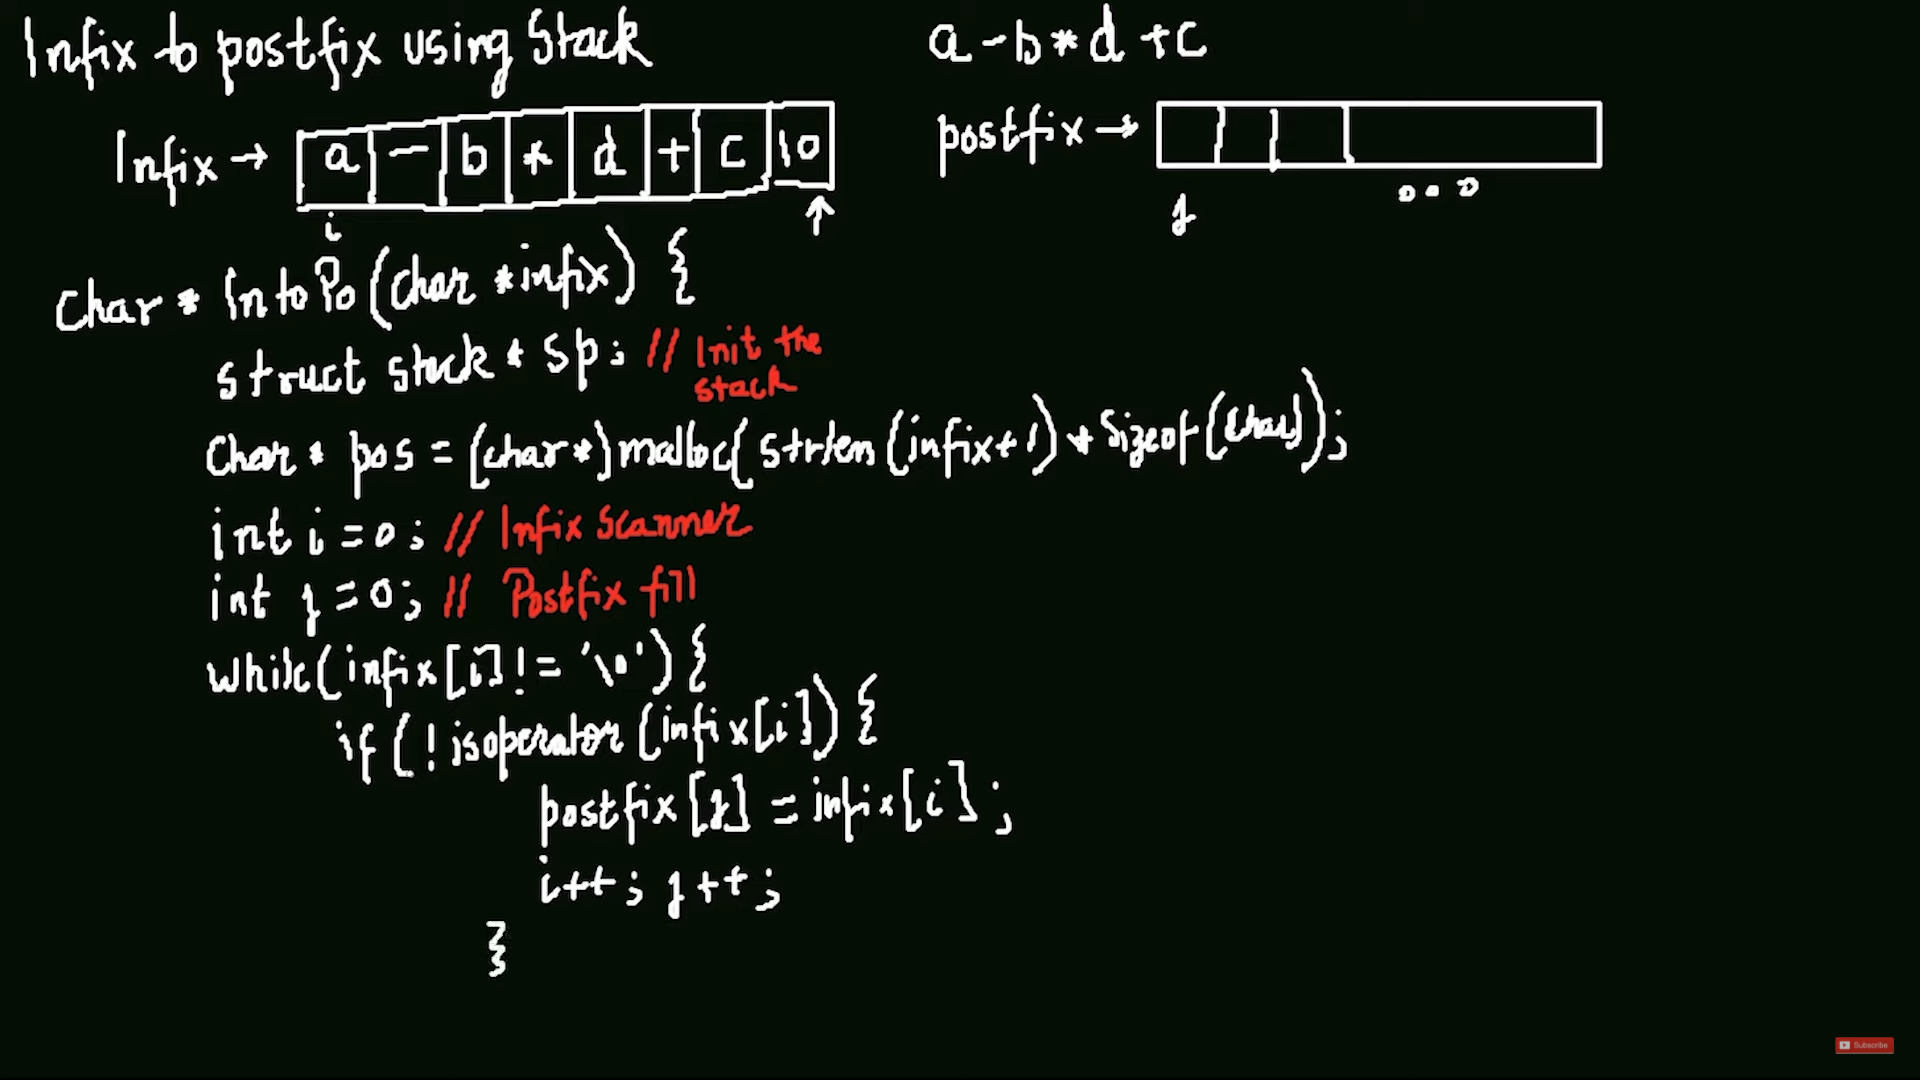 Infix to postfix using Stack
a-b*d+c
Infix → a - b * d + c \0
postfix →
i
j
char * IntoPo(char *infix) {
struct stack * sp; // Init the
stack
char * pos = (char*)malloc(strlen(infix+1)*sizeof(char));
int i=0; // Infix scanner
int j=0; // Postfix fill
while(infix[i]!= '\0') {
if (! isoperator (infix[i]) {
postfix[j] = infix[i];
i++; j++;
}
Subscribe